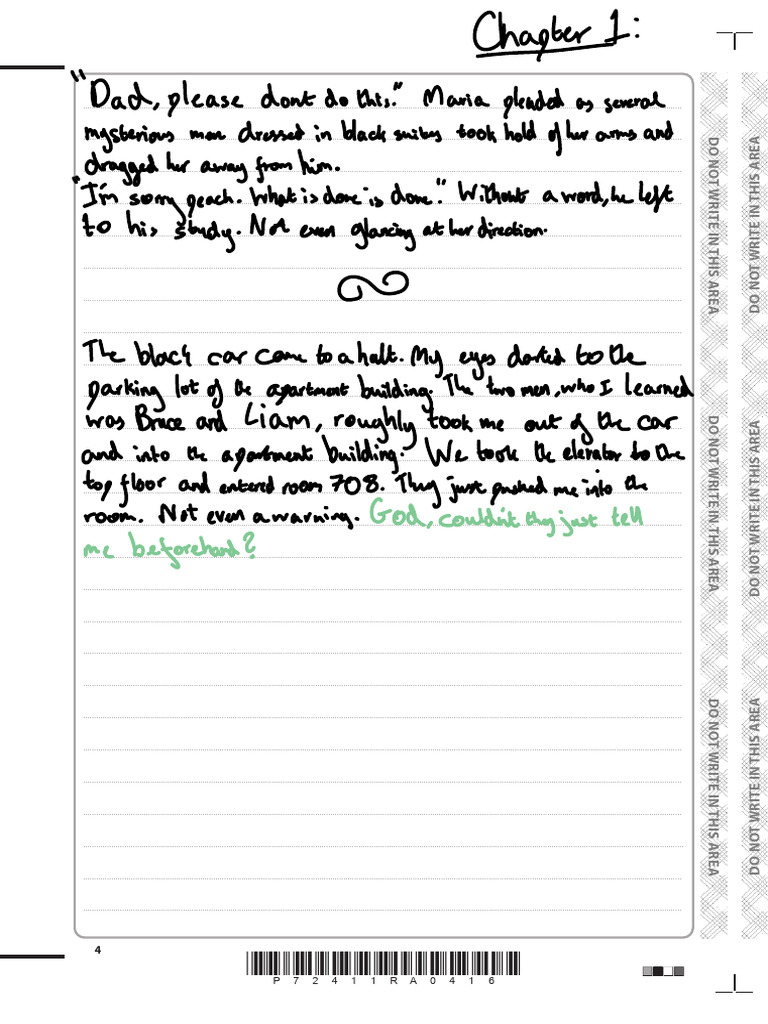 Chapter 1:
"Dad, please dont do this." Maria pleaded as several
mysterious men dressed in black suites took hold of her arms and
dragged her away from him.
"I'm sorry peach. What is done is done." Without a word, he left
to his study. Not even glancing at her direction.
The black car came to a halt. My eyes darted to the
parking lot of the apartment building. The two men, who I learned
was Bruce and Liam, roughly took me out of the car
and into the apartment building. We took the elevator to the
top floor and entered room 708. They just pushed me into the
room. Not even a warning. God, couldn't they just tell
me beforehand?
DO NOT WRITE IN THIS AREA
DO NOT WRITE IN THIS AREA
DO NOT WRITE IN THIS AREA
DO NOT WRITE IN THIS AREA
DO NOT WRITE IN THIS AREA
DO NOT WRITE IN THIS AREA
4
P72411RA0416